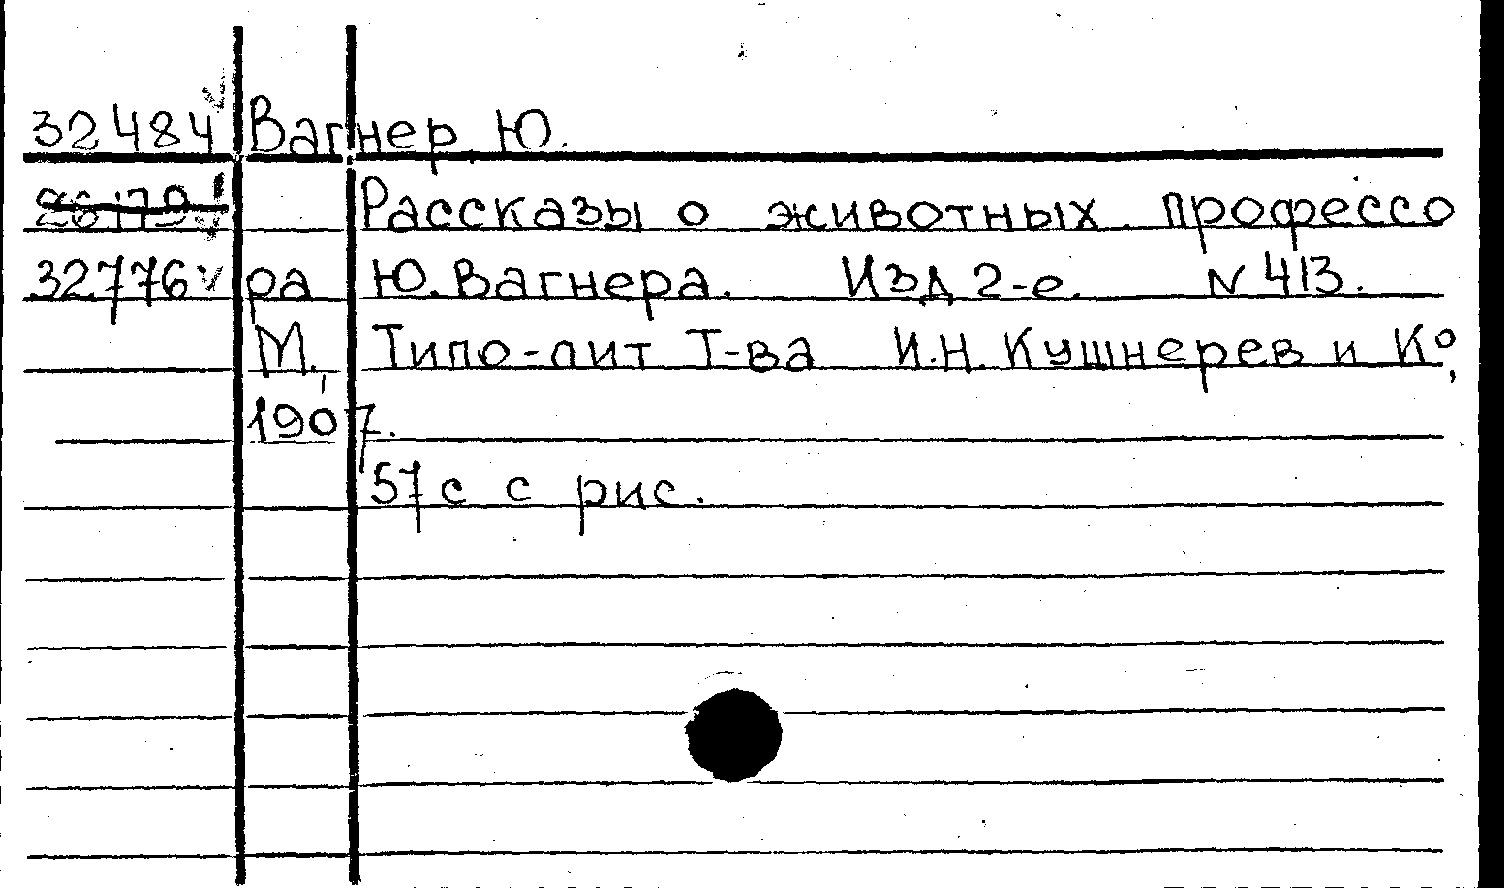 32484 Вагнер Ю.
26179 Рассказы о животных профессо
32776 ра Ю. Вагнера. Изд 2-е. N 413.
М., Типо-лит Т-ва И.Н. Кушнерев и Кº,
1907.
57 с с рис.